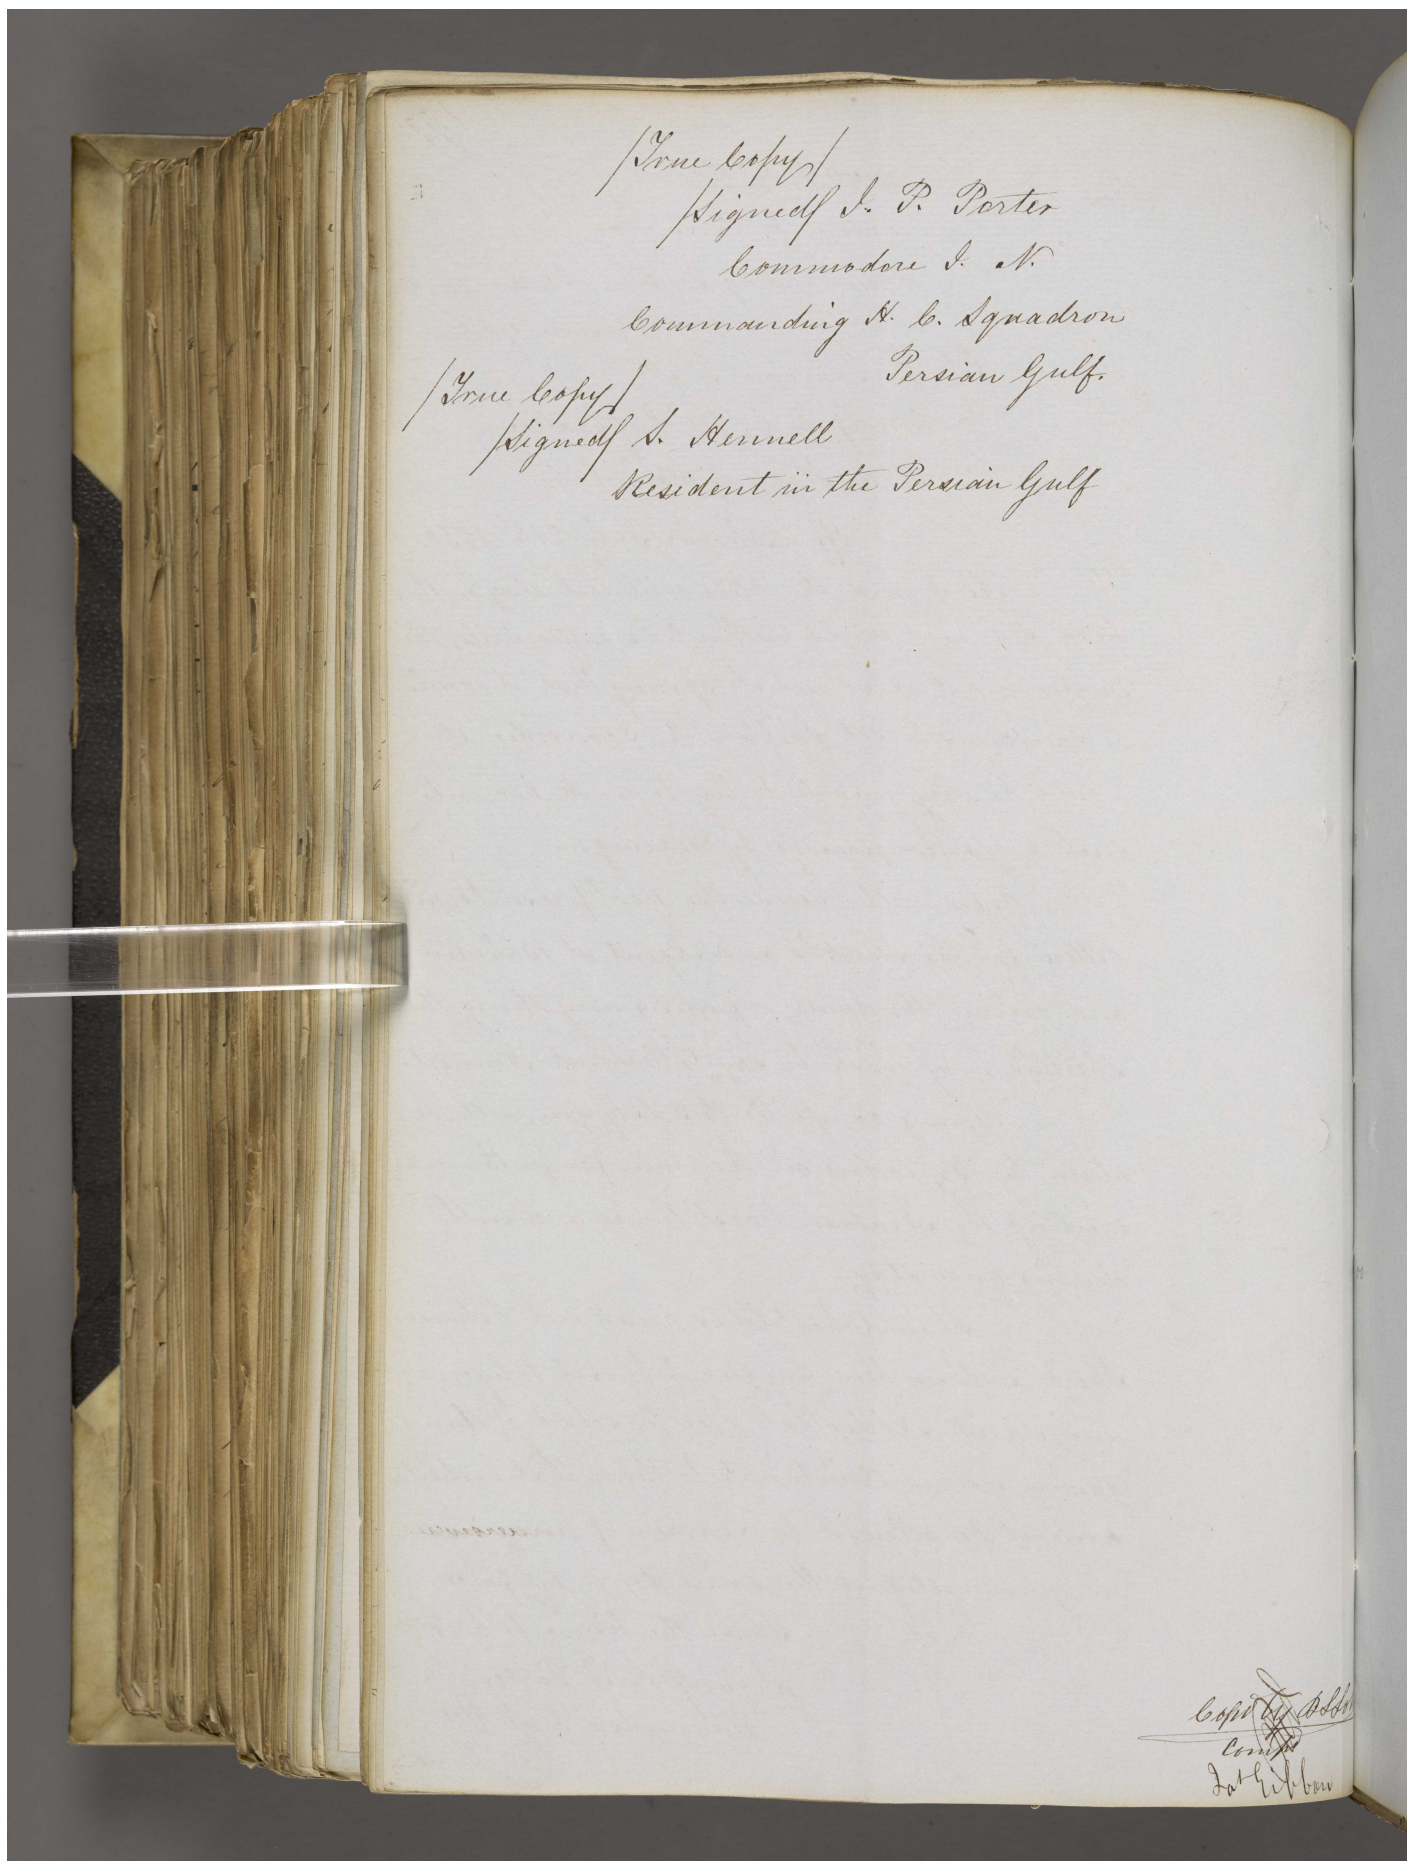 /True Copy/
/Signed/ J. P. Porter
Commodore I. N.
Commanding H. C. Squadron
Persian Gulf.
/True Copy/
/Signed/ S. Hennell
Resident in the Persian Gulf
Copd by
Compd
Gibbon